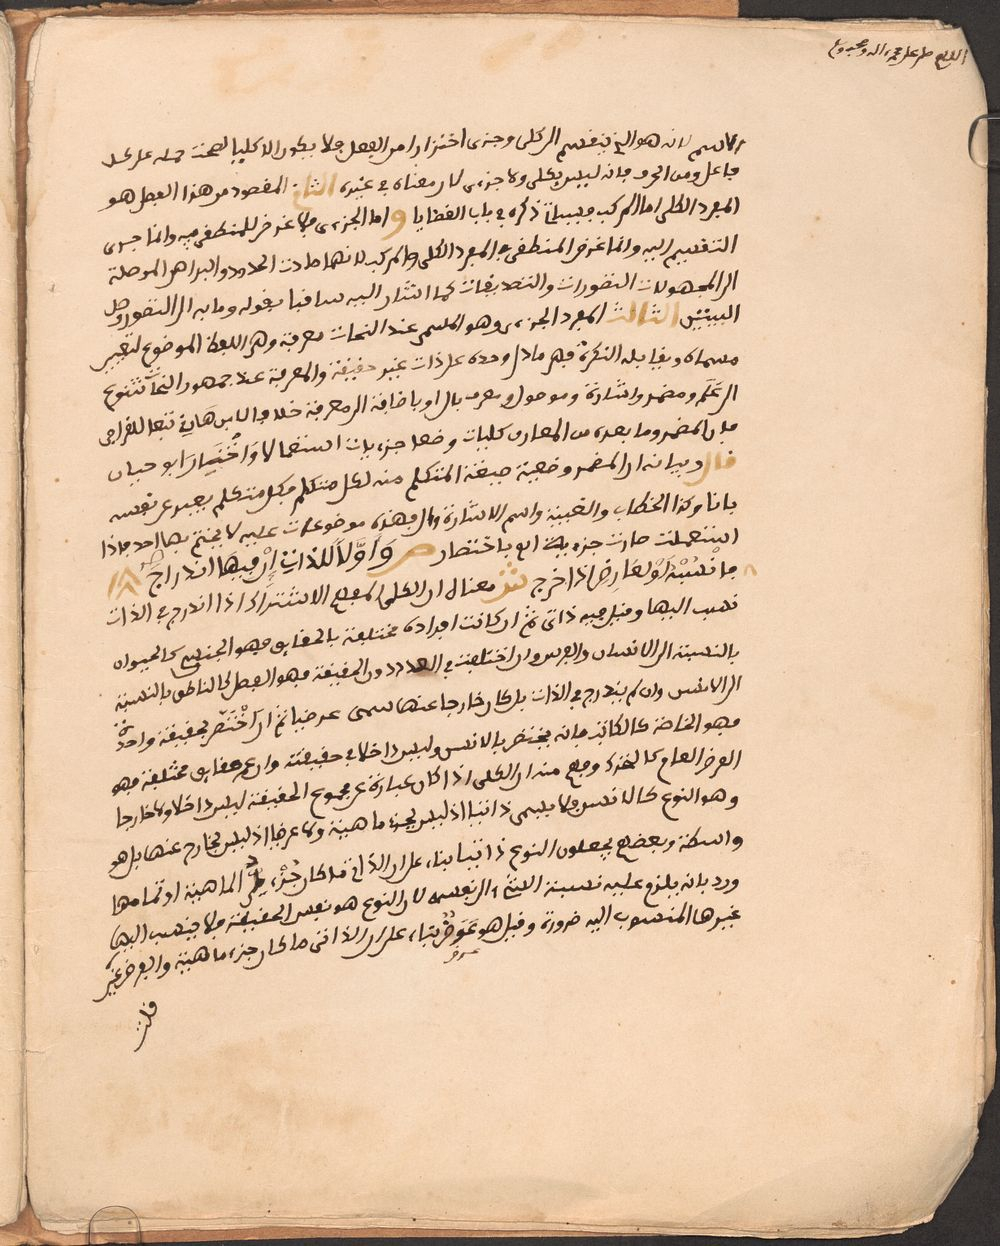 اللهم صل على محمد واله وصحبه وسلم
الاسم لانه هو الذي ينقسم الى كلي وجزءي احترازا من الفعل فلا يكون الا كليا لصحت حمله على كل
فاعل ومن الحرف فانه ليس بكلي ولا جزءي لان معناه في غيره الثاني المقصود من هذا الفصل هو
المفرد الكلي اما المركب فسيأتي ذكره في باب القضايا واما الجزءي فلا غرض للمنطقي فيه وانما جرى
التقسيم اليه وانما غرض المنطقي في المفرد الكلي والمركب لانهما مادت الحدود والبراهن الموصلة
الى المجهولات التصورات والتصديقات كما اشار اليه سابقا بقوله وما به الى التصور وصل
البيتين الثالث المفرد الجزءي وهو المسمى عند النحات معرفة وهي اللفظ الموضوع لتعيين
مسماه ويقابله النكرة فهي ما دل وحده على ذات غير حقيقة والمعرفة عند جمهور النحات تتنوع
الى علم ومضمر واشارة وموصول ومعرف بال او باضافة الى معرفة خلافا لابن هانئ تبعا للقرافي
فان المضمر وما بعده من المعارف كليات وضعا جزءيات استعمالا واختيار ابو حيان
قال وبيانه ان المضمر وضعية صيغة المتكلم منه لكل متكلم فكل متكلم يعبر عن نفسه
بانا وكذا الخطاب والغيبة واسم الاشارة وال فهذه موضوعات عليه لا يختص بها احد فاذا
استعملت صارت جزءية انتهى باختصار ص واولا للذات ان فيها اندرج
فانسبه او لعارض اذا خرج ش معناه ان الكلي المفهم الاشتراك اذا اندرج في الذات
نسب اليها وقيل فيه ذاتي ثم ان كانت افراده مختلفة بالحقايق فهو الجنس كالحيوان
بالنسبة الى الانسان والفرس وان اختلفت في العدد دون الحقيقة فهو الفصل كالناطق بالنسبة
الى الانس وان لم يندرج في الذات بل كان خارجا عنها سمي عرضيا ثم ان اختص بحقيقة واحدة
فهو الخاصة كالكاتب فانه يختص بالانس وليس داخلا في حقيقته وان عم حقايق مختلفة فهو
العرض العام كالمتحرك وفهم منه ان الكلي اذا كان عبارة عن مجموع الحقيقة ليس داخلا ولا خارجا
وهو النوع كالانس فلا يسمى ذاتيا اذ ليس بجزء ماهية ولا عرضيا اذ ليس بخارج عنها بل هو
واسطة وبعضهم يجعلون النوع ذاتيا بناء على ان الذاتي ما كان جزء الماهية او تمامها
ورد بانه يلزم عليه نسبة الشيء الى نفسه لان النوع هو نفس الحقيقة فلا ينسب اليها
غيرها المنسوب اليه ضرورة وقيل هو عرضي بناء على ان الذاتي ما كان جزء ماهية والعرض غير
قلت